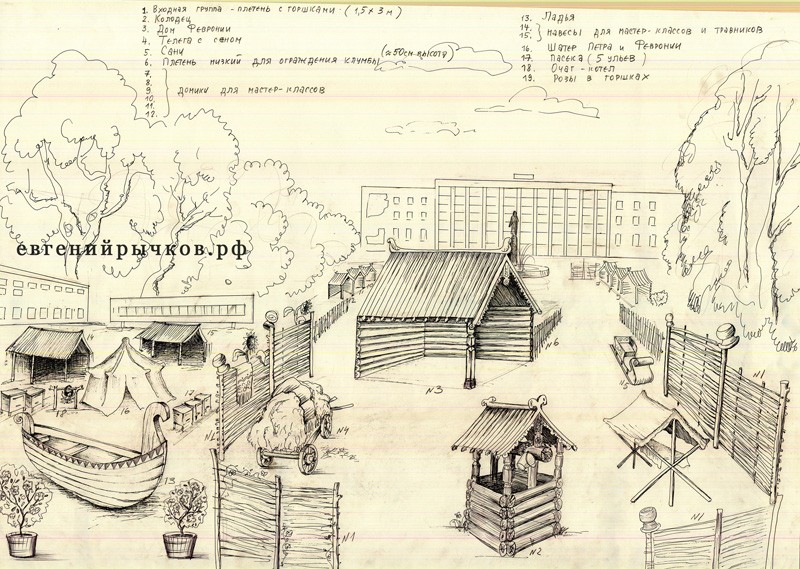 1. Входная группа - плетень с горшками - (1,5 х 3 м)
2. Колодец
3. Дом Февронии
4. Телега с сеном
5. Сани
6. Плетень низкий для ограждения клумбы (≈50см высота)
7.
8.
9. домики для мастер-классов
10.
11.
12.
13. Ладья
14.
15. навесы для мастер-классов и травников
16. Шатер Петра и Февронии
17. Пасека (5 ульев)
18. Очаг - котел
19. Розы в горшках
евгенийрычков.рф
14
15
12
N6
N5
N1
N3
16
18
17
N4
13
N1
N2
N1